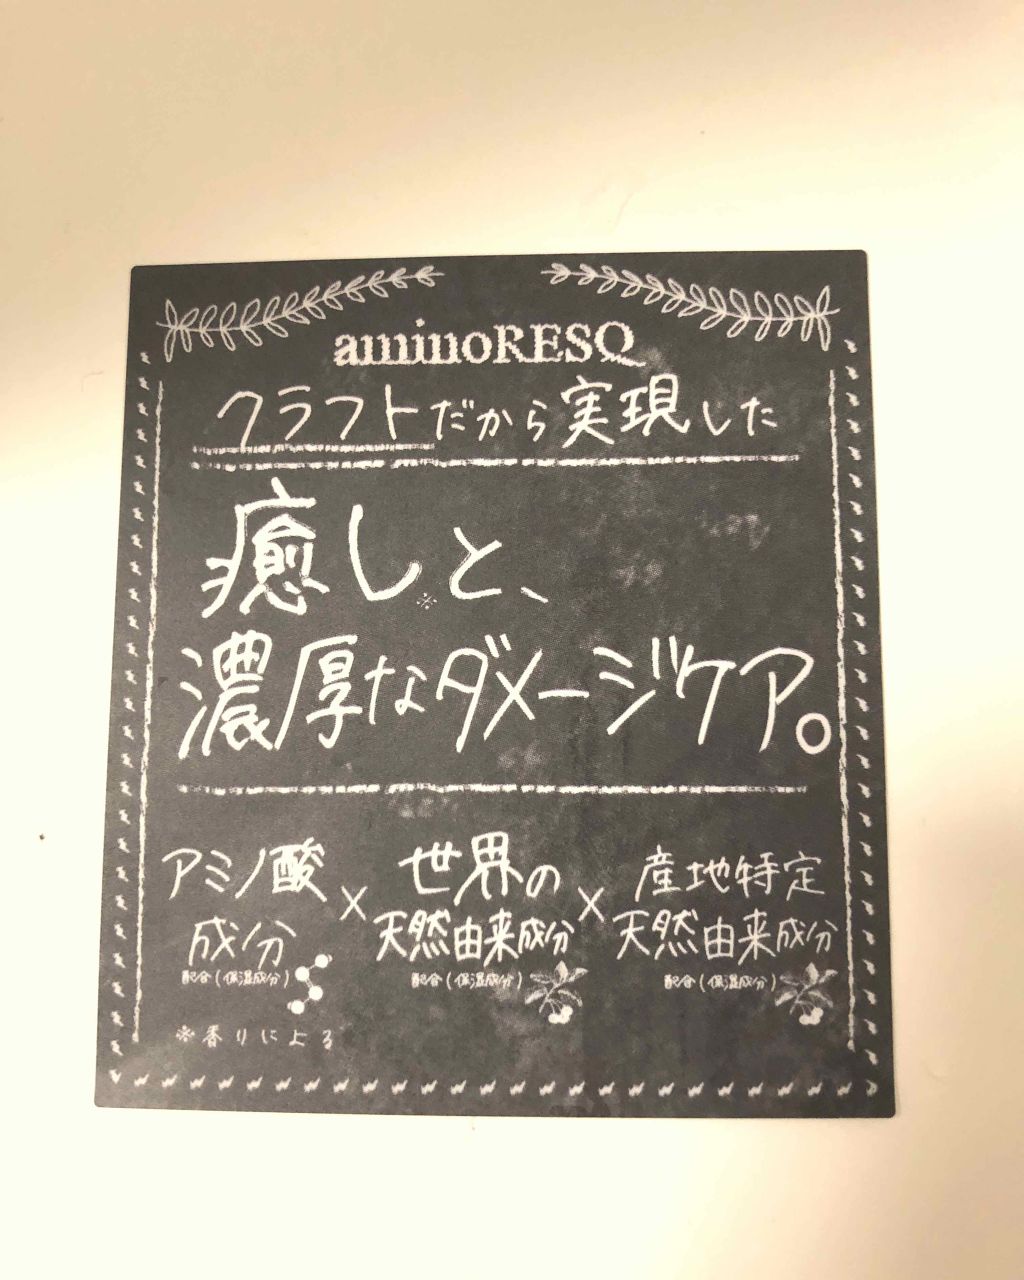 aminoRESQ
クラフトだから実現した
癒し※と、
濃厚なダメージケア。
アミノ酸 × 世界の × 産地特定
成分 天然由来成分 天然由来成分
配合(保湿成分) 配合(保湿成分) 配合(保湿成分)
※香りによる